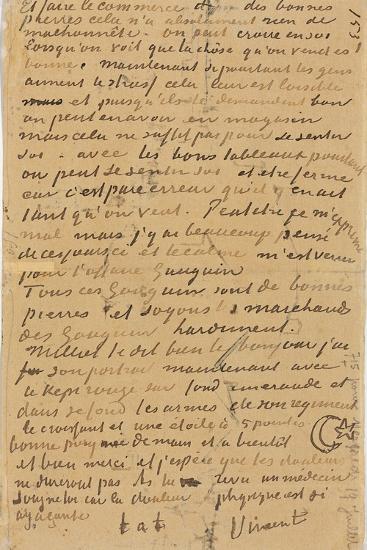 Et faire le commerce des bonnes
pierres cela n'a absolument rien de
malhonnête. On peut croire en soi
lorsqu'on voit que la chose qu'on vend est
bonne. maintenant si pourtant les gens
aiment le strass cela leur est loisible
et puisqu'ils le demandent bon
on peut en avoir en magasin
mais cela ne suffit pas pour se sentir
soi. avec les bons tableaux pourtant
on peut se sentir soi et être ferme
car c'est par erreur qu'il y en ait
tant qu'on veut. Peut être je m'exprime
mal mais j'y ai beaucoup pensé
de ces jours ci et le calme m'est venu
pour l'affaire Gauguin
Tous ces Gauguin sont de bonnes
pierres et soyons les marchands
des Gauguin hardiment.
Milliet te dit bien le bonjour j'ai
son portrait maintenant avec
le Kepi rouge sur fond emeraude et
dans ce fond les armes de son regiment
le croissant et une étoile à 5 pointes
bonne poignée de main et a bientôt
et bien merci et j'espère que les douleurs
ne dureront pas As tu revu un médecin
soigne toi car la douleur physique est si
agaçante
t. a t. Vincent